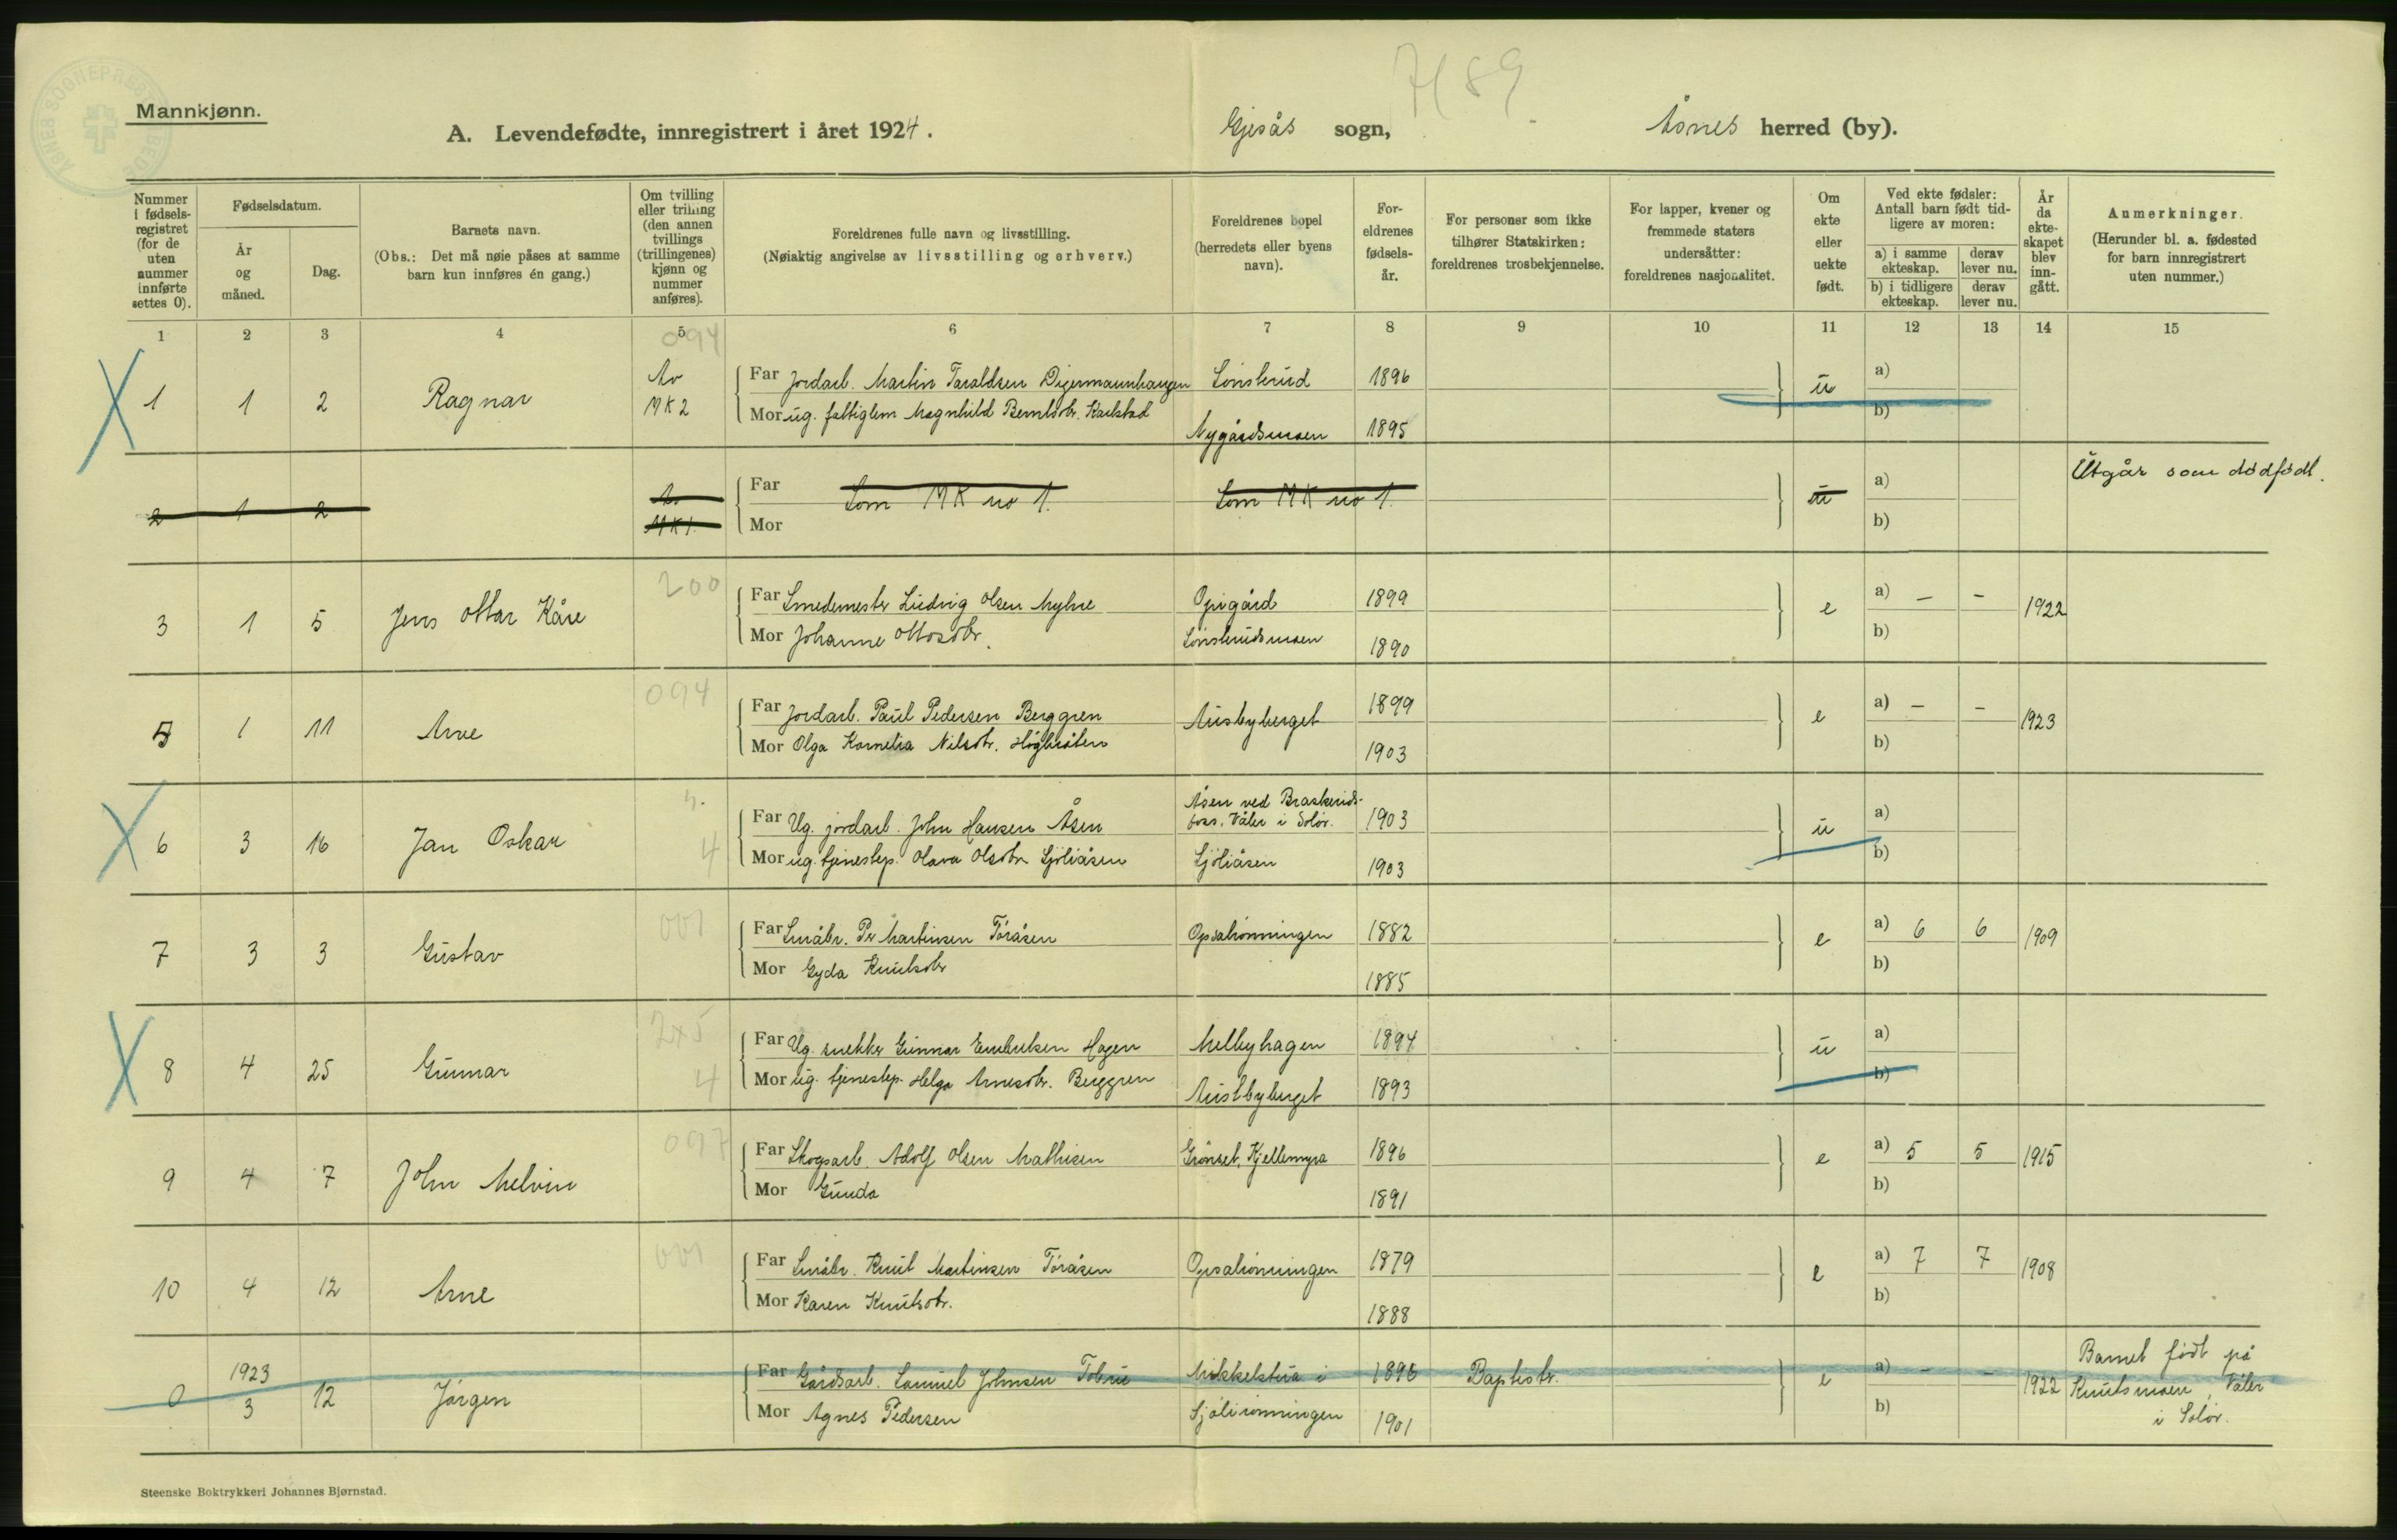 ÅSNES SOGNEPRESTEMBEDE
7/89
Mannkjønn.
A. Levendefødte, innregistrert i året 1924. Gjesås sogn, Åsnes herred (by).
Nummer i fødsels- registret (for de uten nummer innførte settes 0).
Fødselsdatum.
År og måned.
Dag.
Barnets navn.
(Obs.: Det må nøie påses at samme barn kun innføres én gang.)
Om tvilling eller trilling (den annen tvillings (trillingenes) kjønn og nummer anføres).
Foreldrenes fulle navn og livsstilling.
(Nøiaktig angivelse av livsstilling og erhverv.)
Foreldrenes bopel (herredets eller byens navn).
For- eldrenes fødsels- år.
For personer som ikke tilhører Statskirken: foreldrenes trosbekjennelse.
For lapper, kvener og fremmede staters undersåtter: foreldrenes nasjonalitet.
Om ekte eller uekte født.
Ved ekte fødsler: Antall barn født tid- ligere av moren:
a) i samme ekteskap. derav lever nu.
b) i tidligere ekteskap. derav lever nu.
År da ekte- skapet blev inn- gått.
Anmerkninger.
(Herunder bl. a. fødested for barn innregistrert uten nummer.)
1 2 3 4 5 6 7 8 9 10 11 12 13 14 15
094
1 1 2 Ragnar Av MK 2
Far Jordarb. Martin Taraldsen Digermannhaugen Lönsterud 1896 u a)
Mor ug. fattiglem Magnhild Berntsdtr. Karlstad Nygårdsmoen 1895 b)
2 1 2 Av MK 1.
Far Som MK no 1. Som MK no 1. u a) Utgår som dödfödt.
Mor b)
200
3 1 5 Jens Ottar Kåre
Far Smedemester Ludvig Olsen Myhre Opigård 1899 e a) - - 1922
Mor Johanne Ottosdtr. Lönsterudsmoen 1890 b)
094
5 1 11 Arve
Far Jordarb. Paul Pedersen Berggren Austbyberget 1899 e a) - - 1923
Mor Olga Kornelia Nilsdtr. Högbråten 1903 b)
4
6 3 16 Jan Oskar
Far Ug. jordarb. John Hansen Åsen Åsen ved Braskerids- foss, Våler i Solör. 1903 u a)
Mor ug. tjenestep. Olava Olsdtr Sjöliåsen Sjöliåsen 1903 b)
001
7 3 3 Gustav
Far Småbr. Per Martinsen Töråsen Opsalrönningen 1882 e a) 6 6 1909
Mor Gyda Knutsdtr 1885 b)
2x5
4
8 4 25 Gunnar
Far Ug. snekker Gunnar Embretsen Hagen Melbyhagen 1894 u a)
Mor ug. tjenestep. Helga Arnesdtr. Berggren Austbyberget 1893 b)
097
9 4 7 John Melvin
Far Skogsarb. Adolf Olsen Mathisen Grönset, Kjellemyra 1896 e a) 5 5 1915
Mor Gunda 1891 b)
001
10 4 12 Arne
Far Småbr. Knut Martinsen Töråsen Opsalrönningen 1879 e a) 7 7 1908
Mor Karen Knutsdtr. 1888 b)
0 1923 3 12 Jörgen
Far Gårdsarb. Samuel Johnsen Mikkelstua i 1896 Baptistr. e a) - - 1922 Barnet födt på Knutsmoen, Våler i Solör.
Mor Agnes Pedersen Sjölirönningen 1901 b)
Steenske Boktrykkeri Johannes Bjørnstad.